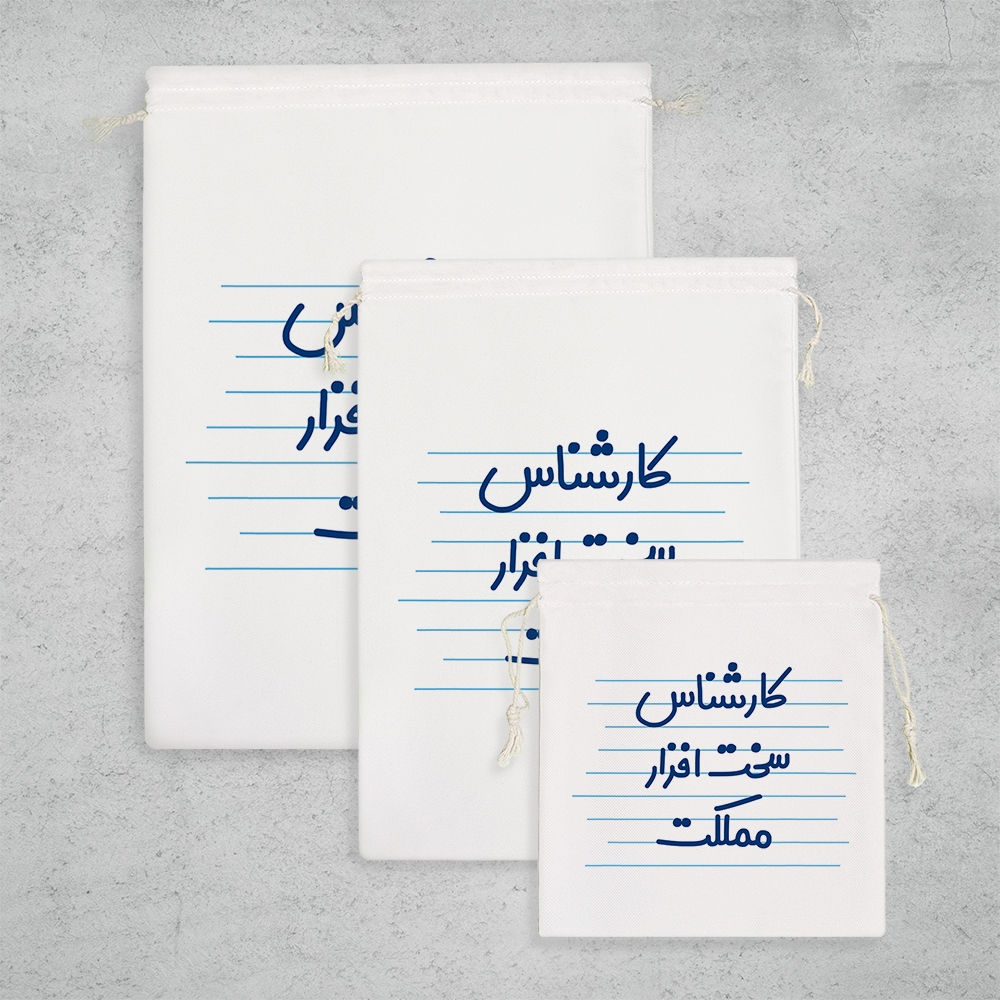 کارشناس
سخت افزار
کارشناس
سخت افزار
مملکت